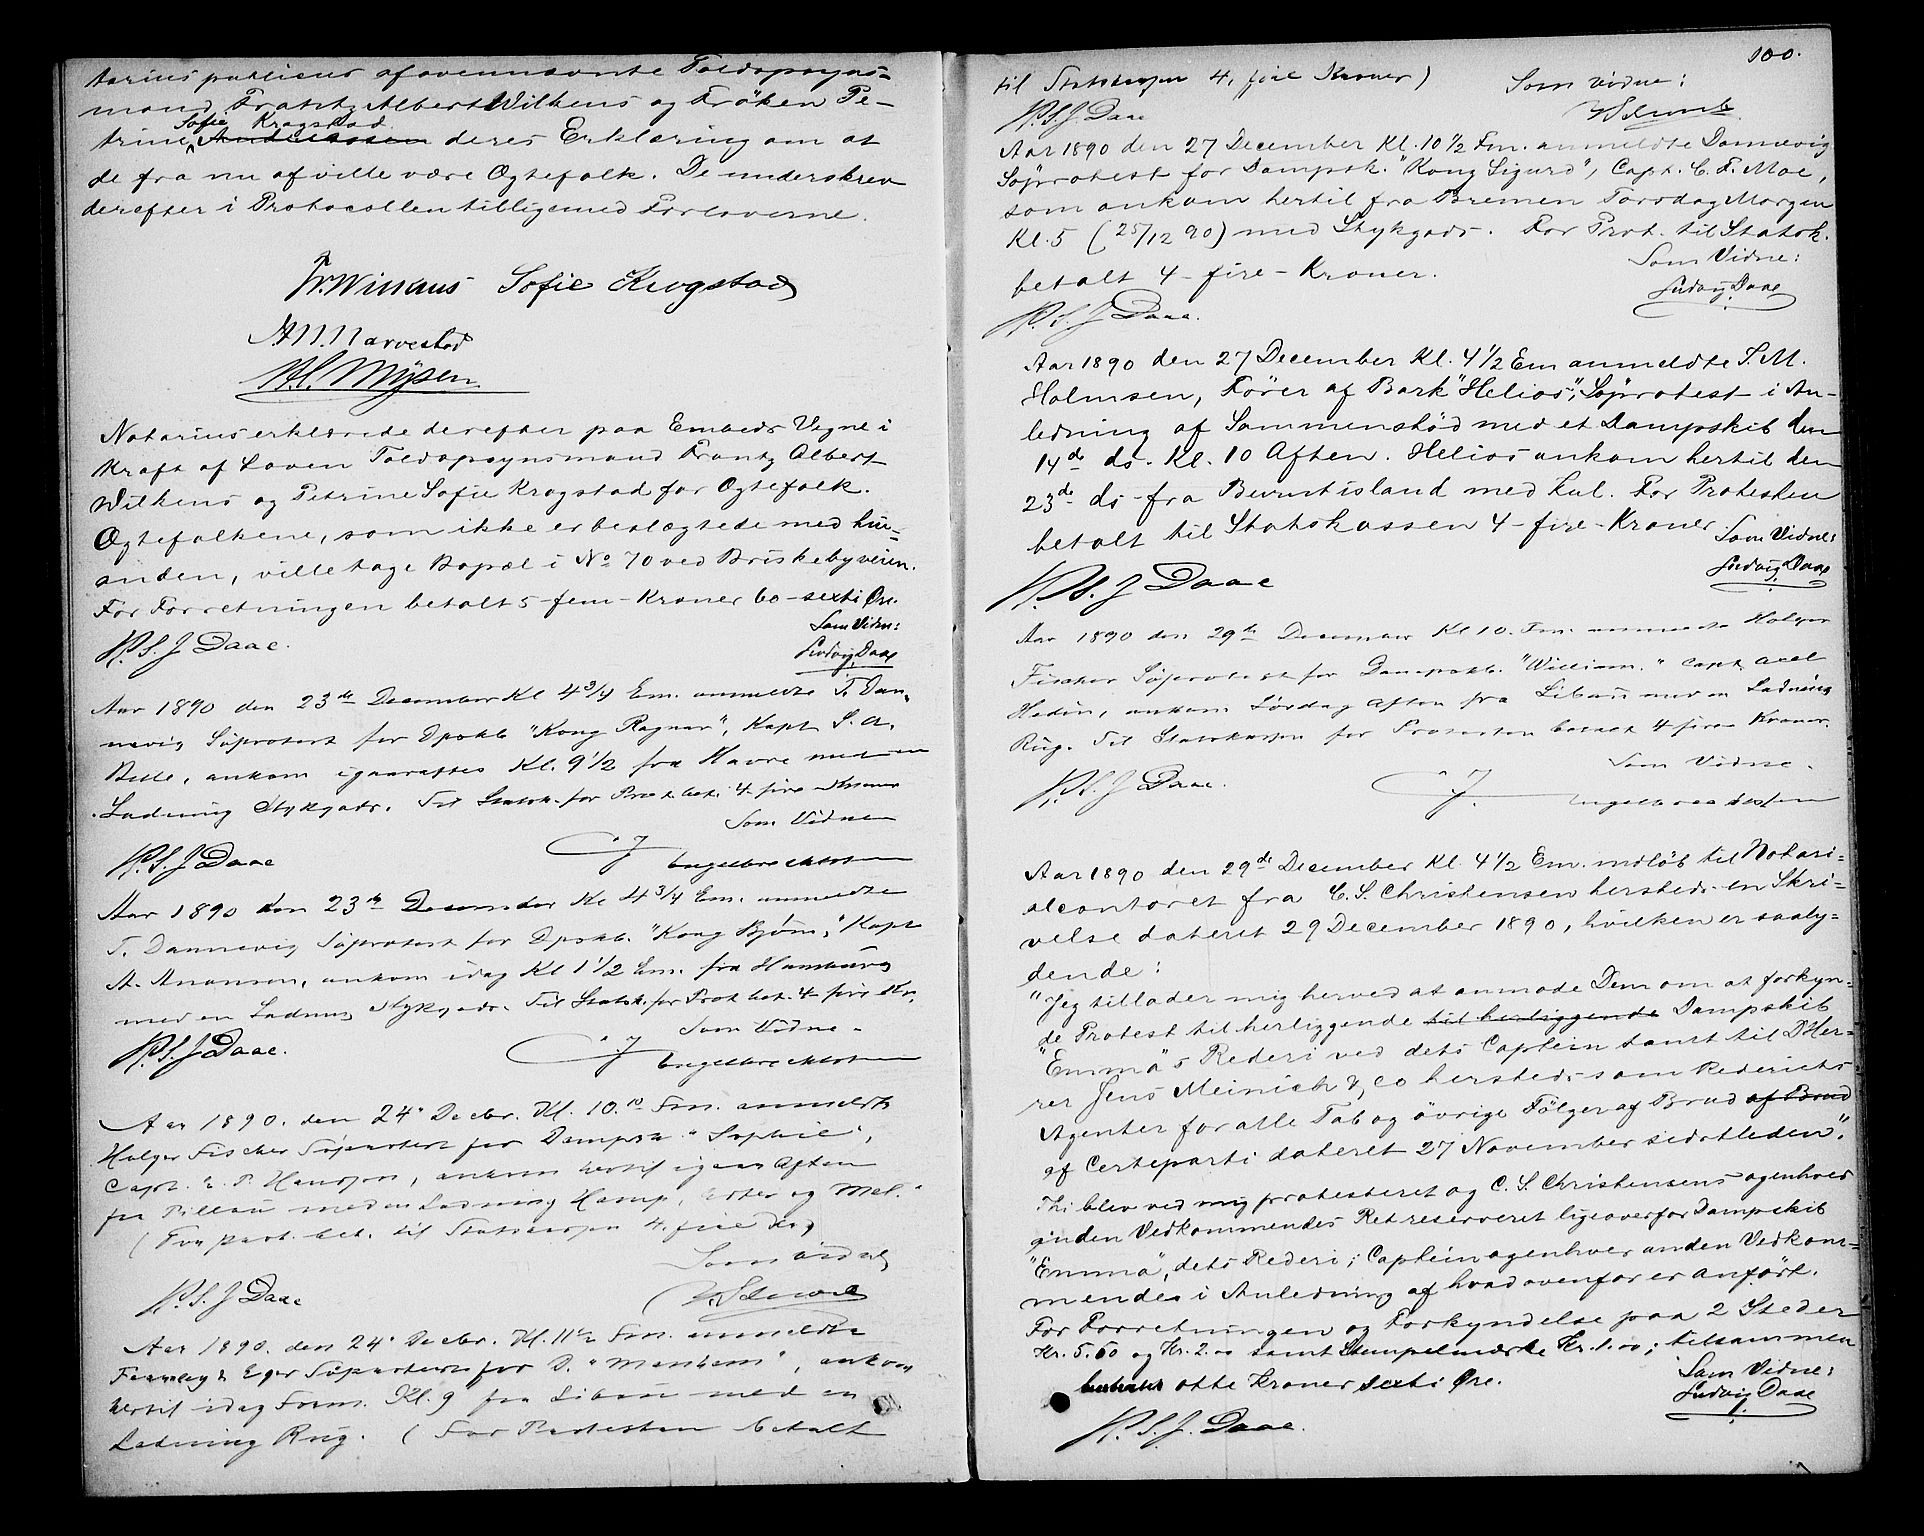 tarius publicus afovennævnte Toldopsyns=
mand Frantz Albert Wilkens og Frøken Pe-
Sofie Krogstad
trine Anderssen deres Erklæring om at
de fra nu af ville være Ægtefolk. De underskrev
derefter i Protocollen tilligemed Forloverne.
Fr. Wilkens Sofie Krogstad
A. M. Narvestad
H. C. Mÿsen
Notarius erklærede derefter paa Embeds Vegne i
Kraft af Loven Toldopsynsmand Frantz Albert
Wilkens og Petrine Sofie Krogstad for Ægtefolk.
Ægtefolkene, som ikke er beslægtede med hin=
anden, ville tage Bopæl i No 70 ved Briskebyveien.
For Forretningen betalt 5-fem-Kroner 60-sexti Øre.
Som Vidne:
H. S. J Daae. Ludvig Daae
Aar 1890 den 23de December Kl 4 3/4 Em. anmeldte T. Dan-
nevig Søprotest for Dpskb "Kong Ragnar", Kapt S. A.
, ankom igaaraftes Kl. 9 1/2 fra Havre med en
Ladning Stykgods. Til Statsk. for Prot. bet. 4 fire Kroner
Som Vidne
H. S. J Daae Engelbrechtsen
Aar 1890 den 23de December Kl 4 3/4 Em. anmeldte
T. Dannevig Søprotest for Dpskb. "Kong Bjørn," Kapt
A. , ankom idag Kl 1 1/2 Em. fra Hamburg
med en Ladning Stykgods. Til Statsk. for Prot bet. 4 fire Kr.
Som Vidne
H. S. J Daae. Engelbrechtsen
Aar 1890. den 24' Decbr. Kl. 10.10 Fm. anmeldte
Holger Fischer Søprotest for Dampsk. "Sophie",
Capt. E. P. Hansen, ankom hertil igaar Aften
fra Pillau med en Ladning Hamp, Erter og Mel.
(For Prot. bet. til Statskassen 4, fire Kr)
Som Vidne
H. S. J Daae
Aar 1890. den 24' Decbr. Kl. 11 1/2 Fm. anmeldte
Fearnley & Eger Søprotest for D. , ankom
hertil idag Form. Kl. 9 fra Libau med en
Ladning Rug. (For Protesten betalt
100.
til Statskassen 4, fire Kroner) Som Vidne:
H. S. J. Daae
Aar 1890 den 27 December Kl. 10 1/2 Fm. anmeldte Dannevig
Søprotest for Dampsk. "Kong Sigurd", Capt. C. F. Moe,
som ankom hertil fra Bremen Torsdag Morgen
Kl. 5 (25/12 90) med Stykgods. For Prot. til Statsk.
betalt 4-fire-Kroner. Som Vidne:
Ludvig Daae
H. S. J Daae.
Aar 1890 den 27 December Kl. 4 1/2 Em anmeldte T. M.
Holmsen, Fører af Bark "Helios", Søprotest i An-
ledning af Sammenstød med et Dampskib den
14de ds. Kl. 10 Aften. Helios ankom hertil den
23de ds fra Burntisland med Kul. For Protesten
betalt til Statskassen 4-fire-Kroner. Som Vidne:
H. S. J Daae Ludvig Daae
Aar 1890 den 29de December Kl 10. Fm. anmeldte Holger
Fischer Søprotest for Dampskb. "William." Capt. Axel
Hedin, ankom Lørdag Aften fra Libau med en Ladning
Rug. Til Statskassen for Protesten betalt 4 fire Kroner.
Som Vidne.
H. S. J Daae. Engelbrechtsen
Aar 1890 den 29de December Kl. 4 1/2 Em. indløb til Notari=
alcontoret fra C. S. Christensen hersteds en Skri=
velse dateret 29 December 1890, hvilken er saaly=
dende:
"Jeg tillader mig herved at anmode Dem om at forkyn=
de Protest til herliggende til herliggende Dampskib
"Emma"s Rederi ved dets Captein samt til D'Her=
rer Jens Meinich & Co hersteds som Rederiets
Agenter for alle Tab og øvrige Følger af Brud af Brud
af Certeparti dateret 27 November sidstleden".
Thi blev ved mig protesteret og C. S. Christensens og enhver
anden Vedkommendes Ret reserveret ligeoverfor Dampskib
"Emma", dets Rederi, Captein og enhver anden Vedkom=
mende i Anledning af hvad ovenfor er anført.
For Forretningen og Forkyndelse paa 2 Steder
Kr. 5.60 og Kr. 2.00 samt Stempelmærke Kr. 1.00; tilsammen
otte Kroner sexti Øre. Som Vidne:
Ludvig Daae
H. S. J. Daae.